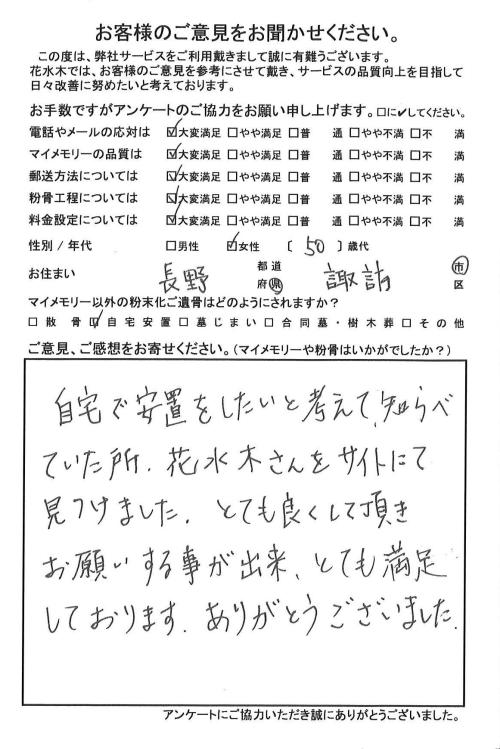 お客様のご意見をお聞かせください。
この度は、弊社サービスをご利用戴きまして誠に有難うございます。
花水木では、お客様のご意見を参考にさせて戴き、サービスの品質向上を目指して
日々改善に努めたいと考えております。
お手数ですがアンケートのご協力をお願い申し上げます。□に✔してください。
電話やメールの応対は ☑大変満足 □やや満足 □普 通 □やや不満 □不 満
マイメモリーの品質は ☑大変満足 □やや満足 □普 通 □やや不満 □不 満
郵送方法については ☑大変満足 □やや満足 □普 通 □やや不満 □不 満
粉骨工程については ☑大変満足 □やや満足 □普 通 □やや不満 □不 満
料金設定については ☑大変満足 □やや満足 □普 通 □やや不満 □不 満
性別 / 年代 □男性 ☑女性 〔 50 〕歳代
お住まい 長野 都 道 府 県 諏訪 市 区
マイメモリー以外の粉末化ご遺骨はどのようにされますか？
□散 骨 ☑自宅安置 □墓じまい □合同墓・樹木葬 □その他
ご意見、ご感想をお寄せください。(マイメモリーや粉骨はいかがでしたか？)
自宅で安置をしたいと考えて、知らべ
ていた所、花水木さんをサイトにて
見つけました。とても良くして頂き
お願いする事が出来、とても満足
しております。ありがとうございました。
アンケートにご協力いただき誠にありがとうございました。